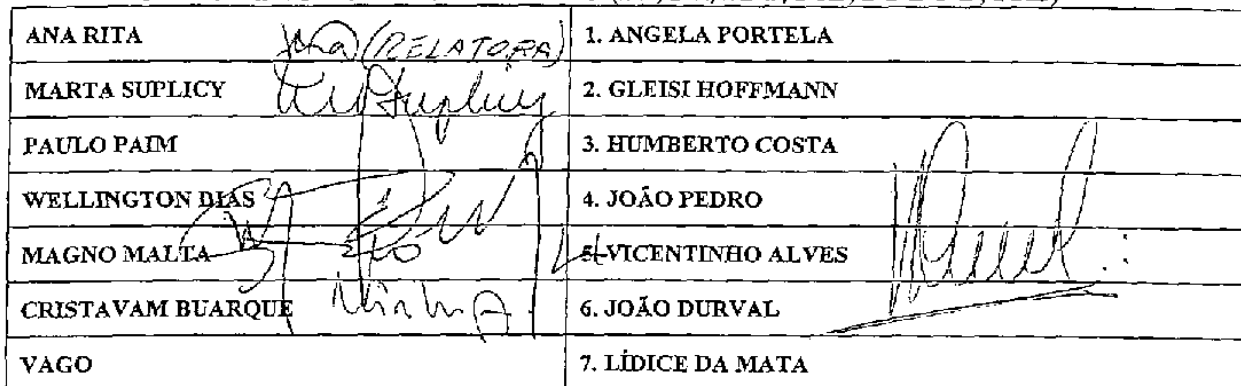 ANA RITA (RELATORA) 1. ANGELA PORTELA
MARTA SUPLICY 2. GLEISI HOFFMANN
PAULO PAIM 3. HUMBERTO COSTA
WELLINGTON DIAS 4. JOÃO PEDRO
MAGNO MALTA 5. VICENTINHO ALVES
CRISTAVAM BUARQUE 6. JOÃO DURVAL
VAGO 7. LÍDICE DA MATA